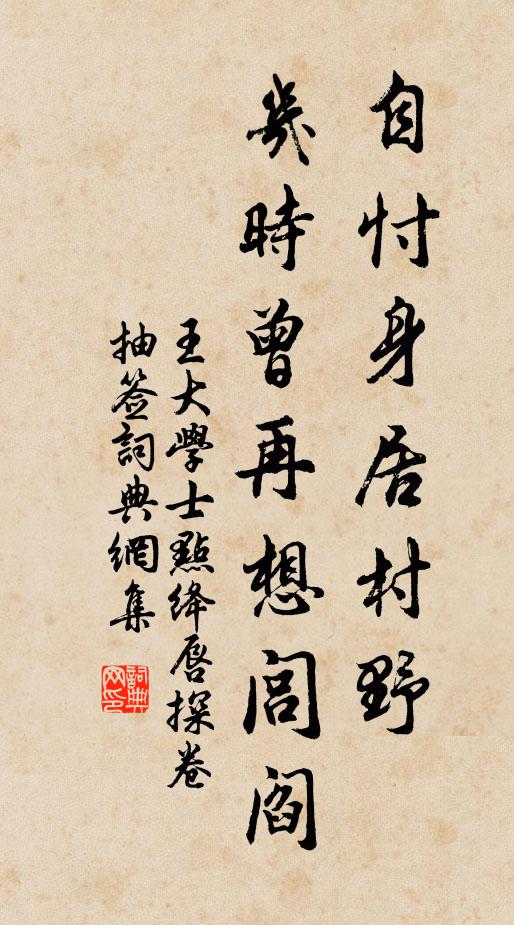 自忖身居村野
幾時曾再想閻閻
王大學士點绛唇探卷
抽签詞典網集
詞典
网印